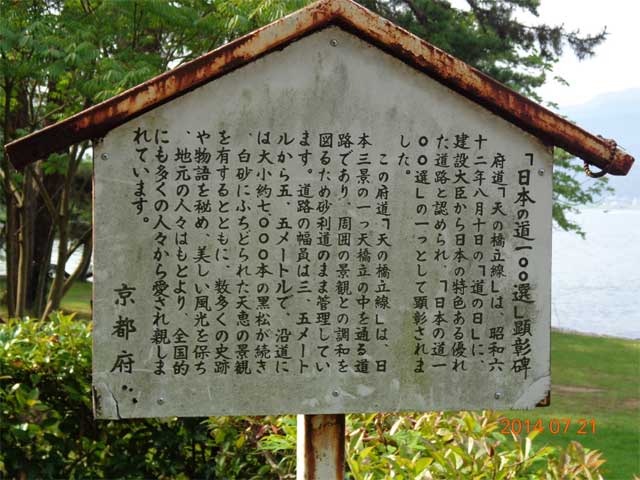 「日本の道一〇〇選」顕彰碑
府道「天の橋立線」は、昭和六
十二年八月十日の「道の日」に、
建設大臣から日本の特色ある優れ
た道路と認められ、「日本の道一
〇〇選」の一つとして顕彰されま
した。
この府道「天の橋立線」は、日
本三景の一つ天橋立の中を通る道
路であり、周囲の景観との調和を
図るため砂利道のまま管理してい
ます。道路の幅員は三、五メート
ルから五、五メートルで、沿道に
は大小約七、〇〇〇本の黒松が続き
、白砂にふちどられた天恵の景観
を有するとともに、数多くの史跡
や物語を秘め、美しい風光を保ち
、地元の人々はもとより、全国的
にも多くの人々から愛され親しま
れています。
京都府
2014 07 21